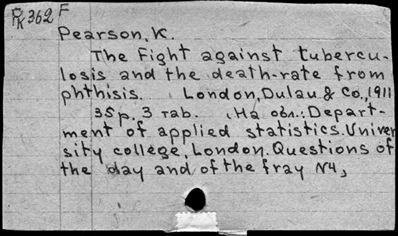 РК362 F
Pearson, K.
The Fight against tubercu-
losis and the death-rate from
phthisis. London, Dulau & Co, 1911
35p. 3 таб. (На обл.: Depart-
ment of applied statistics. Univer
sity college, London. Questions of
the day and of the fray N4)